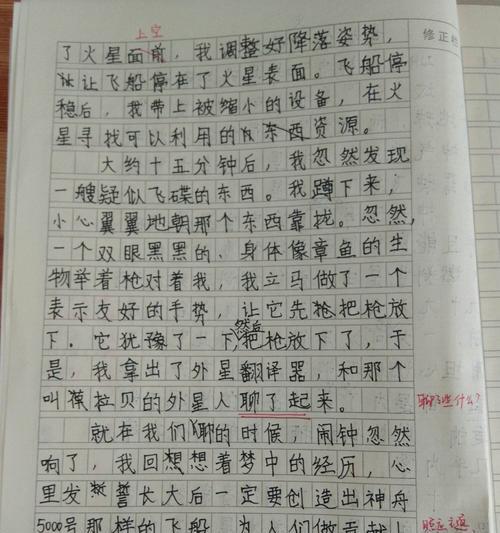 上空
修正栏
了火星面前，我调整好降落姿势，
让飞船停在了火星表面。飞船停
稳后，我带上被缩小的设备，在火
星寻找可以利用的东西资源。
大约十五分钟后，我忽然发现
一艘疑似飞碟的东西。我蹲下来，
小心翼翼地朝那个东西靠拢。忽然，
一个双眼黑黑的、身体像章鱼的生
物举着枪对着我，我立马做了一个
表示友好的手势，让它先枪把枪放
然后
下。它犹豫了一下把枪放下了，于
是，我拿出了外星翻译器，和那个
叫拉贝的外星人聊了起来。
聊了些什么？
就在我们聊的时候，闹钟忽然
响了，我回想想着梦中的经历，心
里发誓长大后一定要创造出神舟
5000号那样的飞船，为人们做贡献！